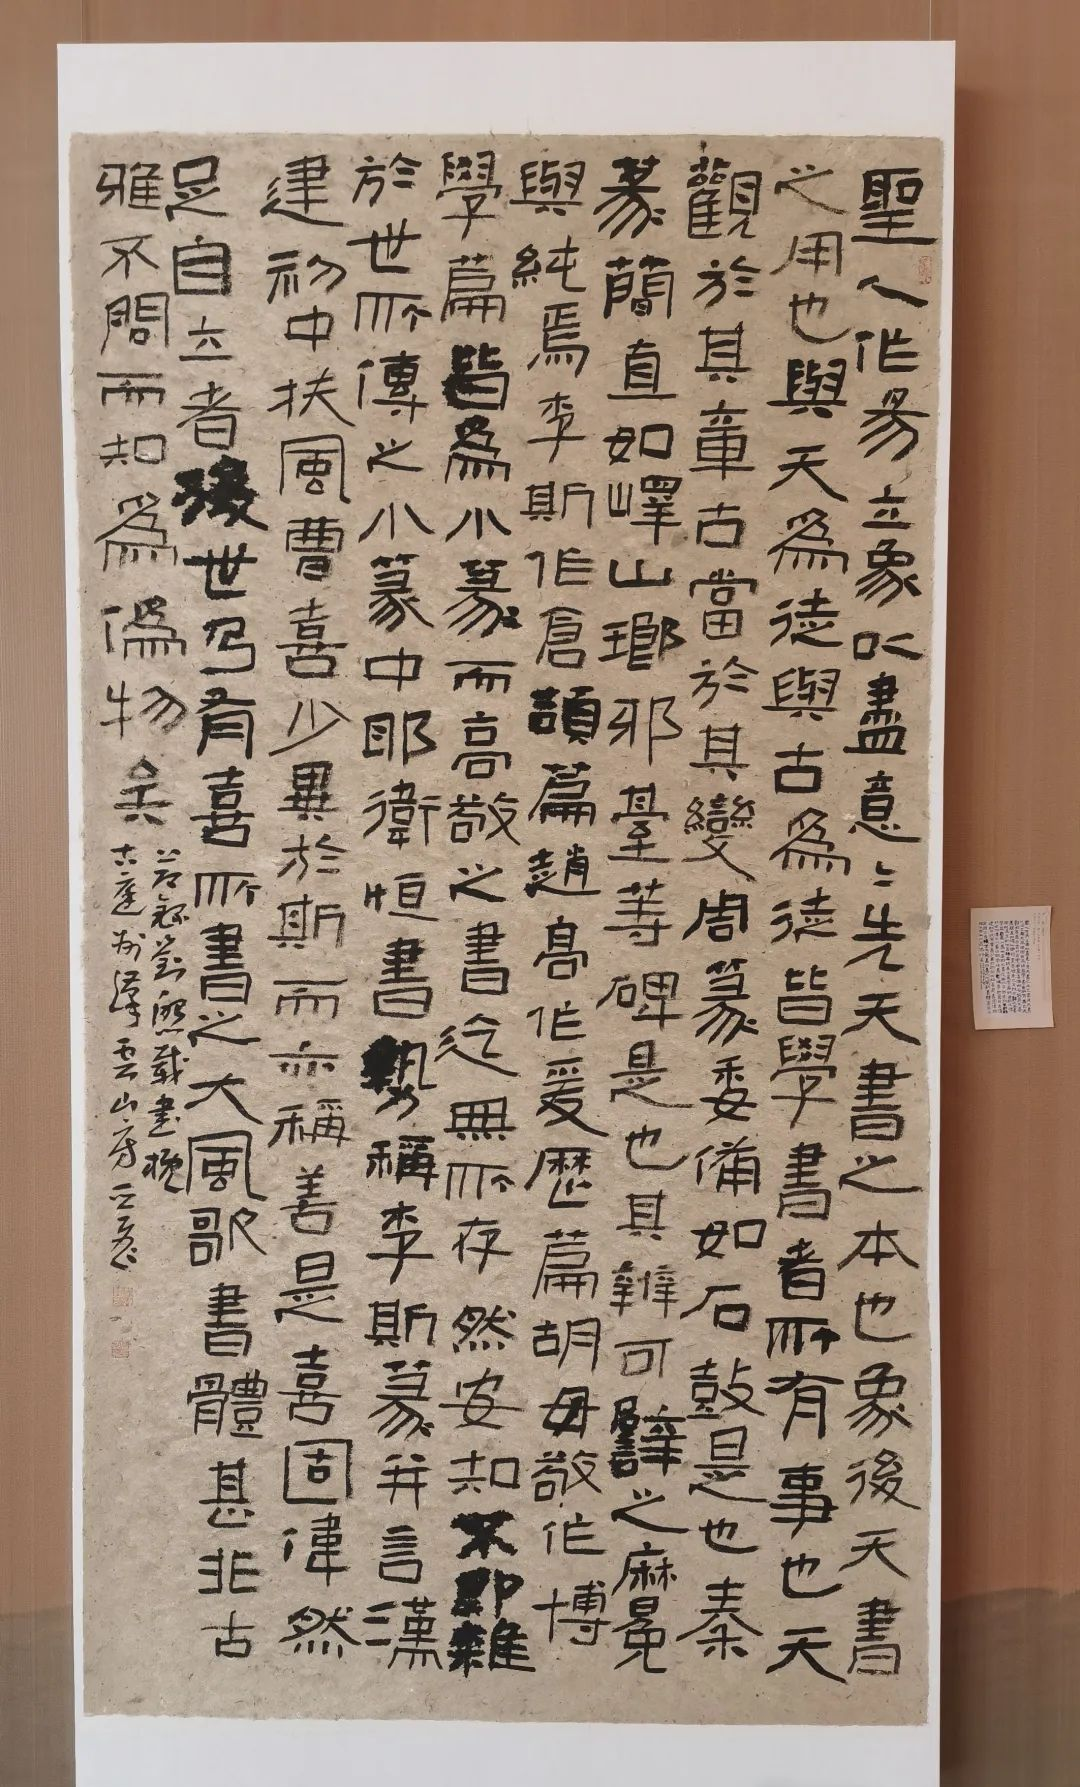 聖人作易立象以盡意〻先天書之本也象後天書
之用也與天為徒與古為徒皆學書者所有事也天
觀於其章古當於其變周篆委備如石鼓是也秦
篆簡直如嶧山瑯邪臺等碑是也其辨可譬之麻冕
與純焉李斯作倉頡篇趙高作爰歷篇胡毋敬作博
學篇皆為小篆而高敬之書迄無所存然安知不即雜
於世所傳之小篆中耶衛恒書勢稱李斯篆并言漢
建初中扶風曹喜少異於斯而亦稱善是喜固偉然
足自立者後世乃有喜所書之大風歌書體甚非古
雅不問而知為偽物矣
劉熙載書概
雲山房